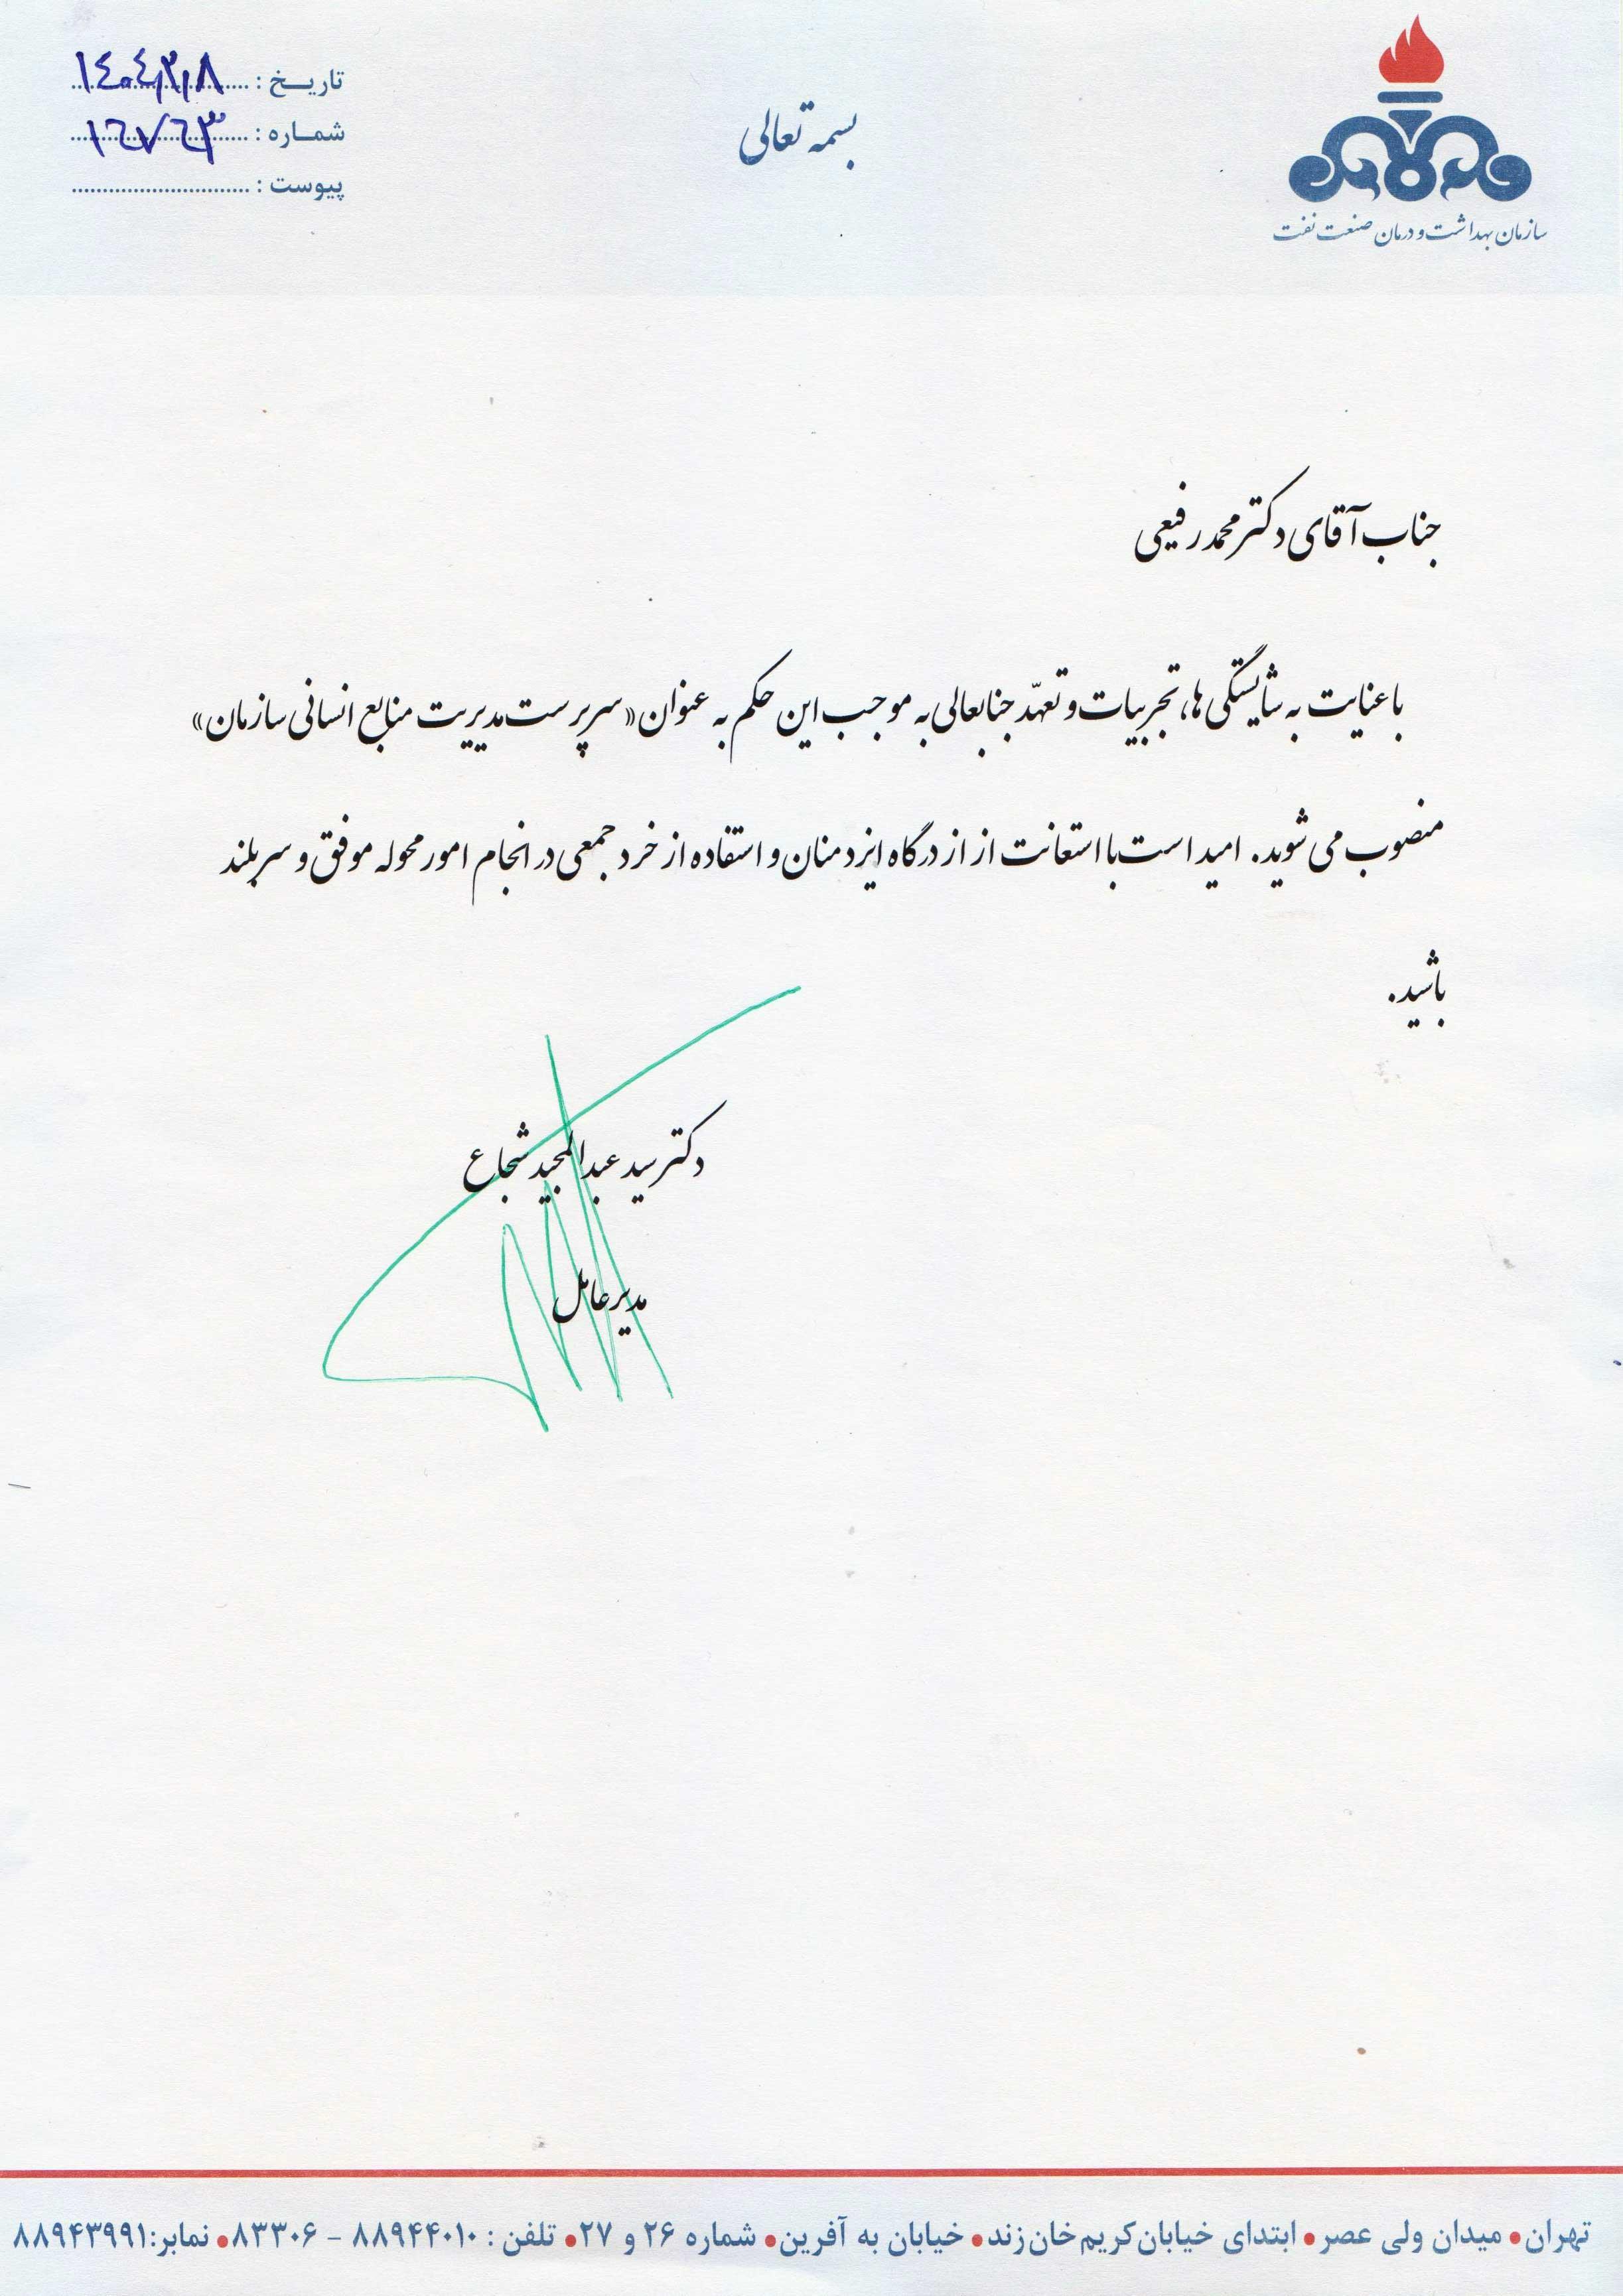 تاریخ : ۱۴۰۴/۲/۸
شماره :
پیوست :
بسمه تعالی
سازمان بهداشت و درمان صنعت نفت
جناب آقای دکتر محمد رفیعی
با عنایت به شایستگی ها، تجربیات و تعهّد جنابعالی به موجب این حکم به عنوان «سرپرست مدیریت منابع انسانی سازمان»
منصوب می شوید. امید است با استعانت از از درگاه ایزد منان و استفاده از خرد جمعی در انجام امور محوله موفق و سربلند
باشید.
دکتر سید عبدالمجید شجاع
مدیرعامل
تهران • میدان ولی عصر • ابتدای خیابان کریم خان زند • خیابان به آفرین • شماره ۲۶ و ۲۷ • تلفن : ۸۸۹۴۴۰۱۰ - ۸۳۳۰۶ • نمابر: ۸۸۹۴۳۹۹۱